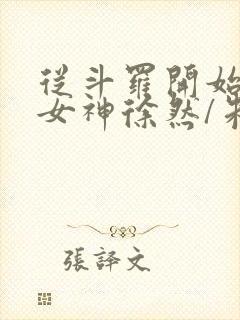 從斗羅開始
女神徐然/朱
張譯文